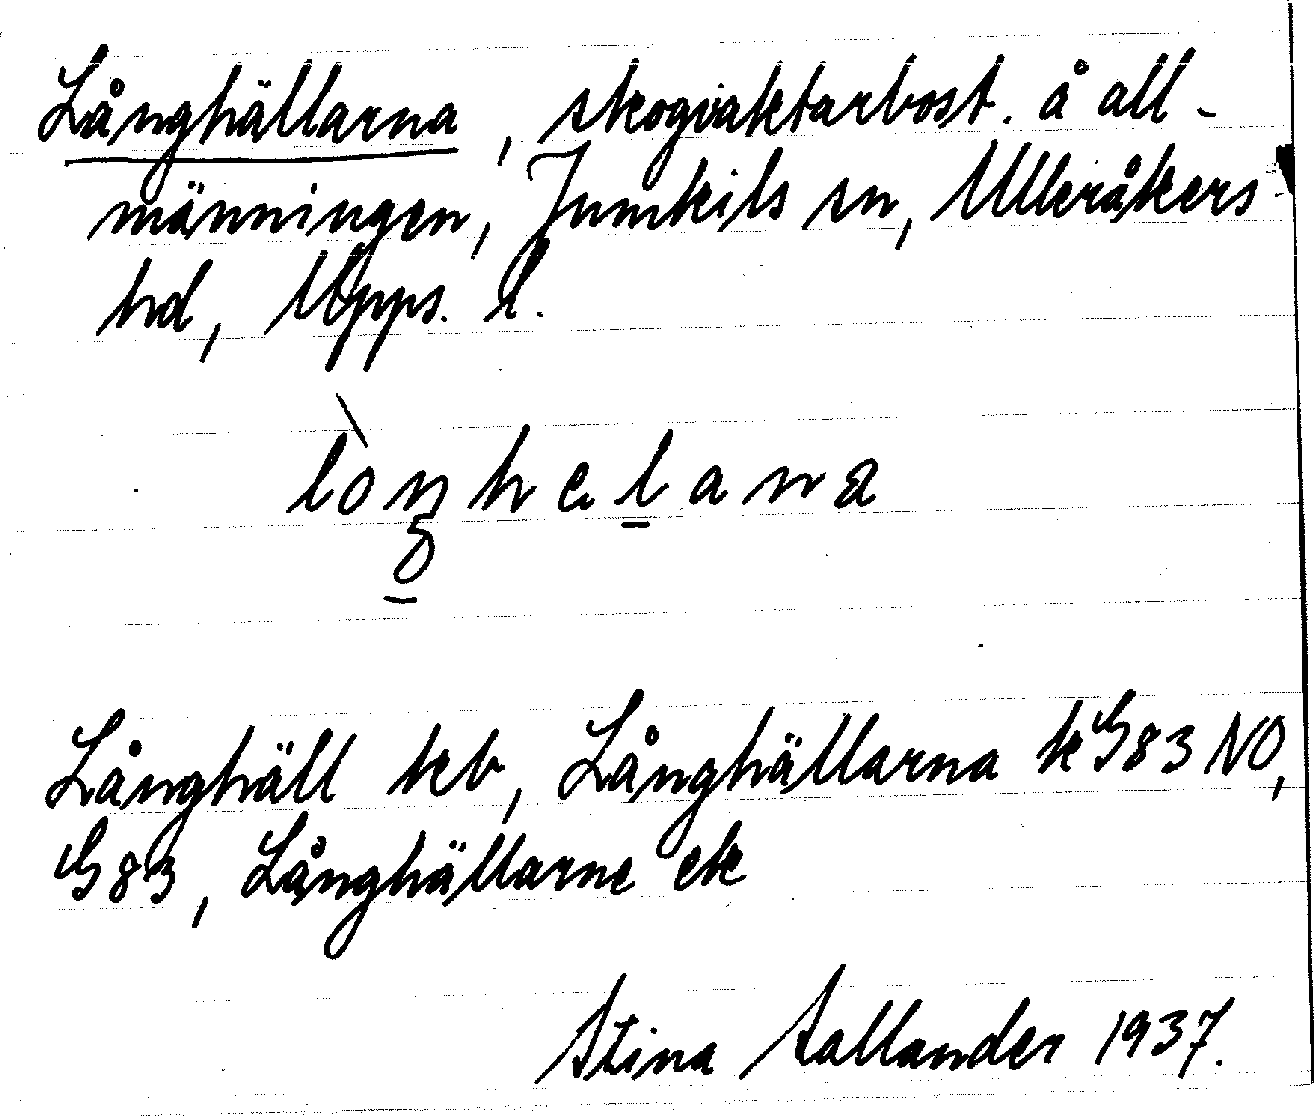 Långhällarna, skogvaktarbost. å all-
männingen, Jumkils sn, Ulleråkers
hd, Upps. l.
lòŋhelana
Långhäll kb, Långhällarna k G83 NO,
G83, Långhällarne ek
Stina Sallander 1937.